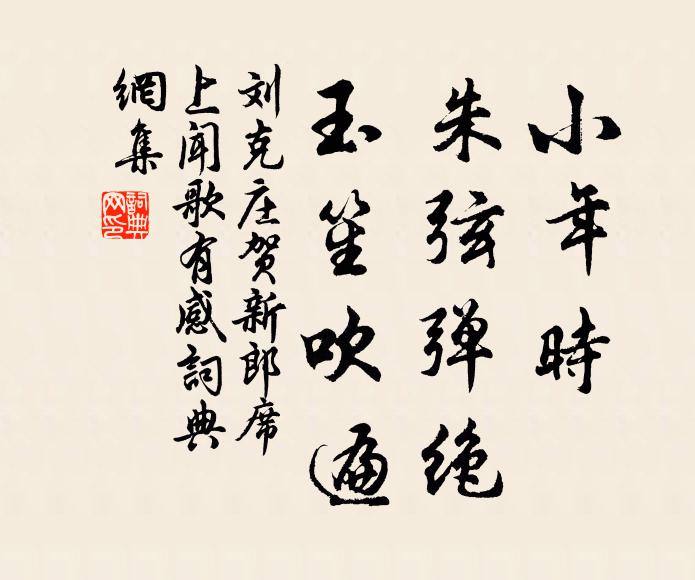 小年時
朱弦弹绝
玉笙吹遍
刘克庄贺新郎席
上闻歌有感詞典
網集
詞典
网印